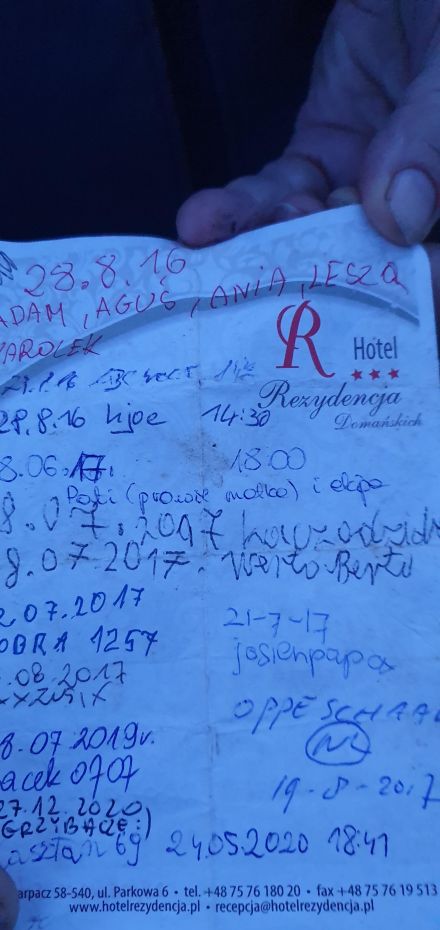 28.8.16
ADAM, AGUŚ, ANIA, LESZQ
KAROLEK
R
Hotel
Rezydencja
Domańskich
28.8.16 14:30
8.06.17. 18:00
i ekipa
8.07.2017
8.07.2017.
2.07.2017
OBRA 1257
21-7-17
josienpapa
.08.2017
OPPE SCHAA
NL
8.07.2019r.
acek 0707
19-8-2017
27.12.2020
GRZYBACZE:)
asztan 69 24.05.2020 18:41
arpacz 58-540, ul. Parkowa 6 • tel. +48 75 76 180 20 • fax +48 75 76 19 513
www.hotelrezydencja.pl • recepcja@hotelrezydencja.pl